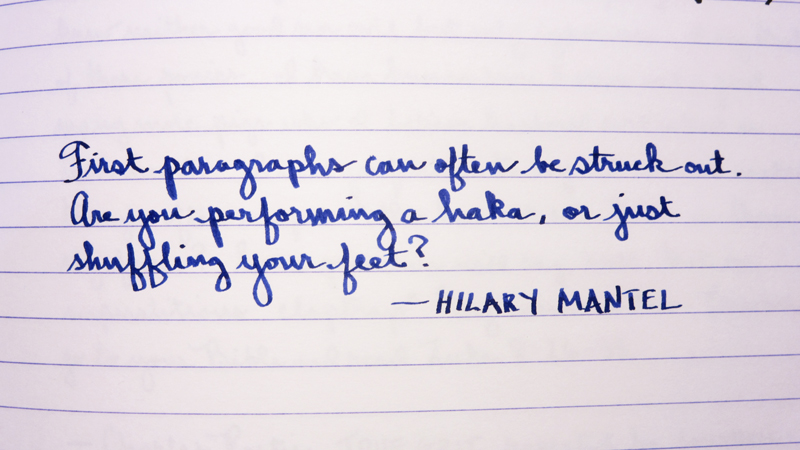 First paragraphs can often be struck out.
Are you performing a haka, or just
shuffling your feet?
— HILARY MANTEL